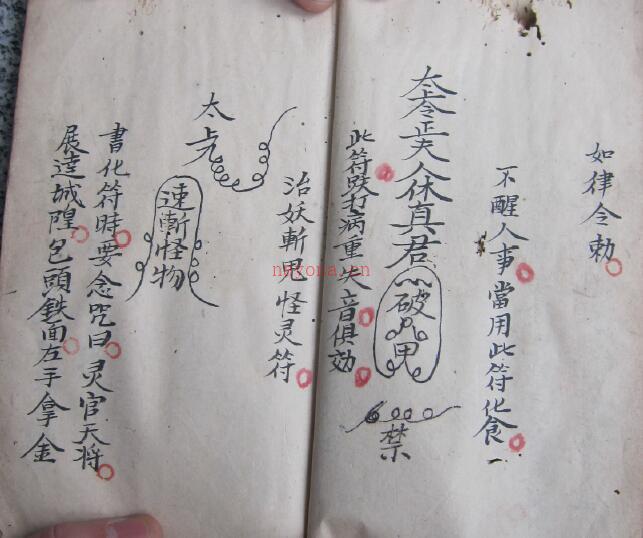 如律令勅
不醒人事當用此符化食
太
正夫人
休真君
破
禁
此符跌打病重失音俱効
治妖斬鬼怪灵符
太
速斬怪物
書化符時要念咒曰灵官天将
展逹城隍包頭鉄面左手拿金
nayona.cn